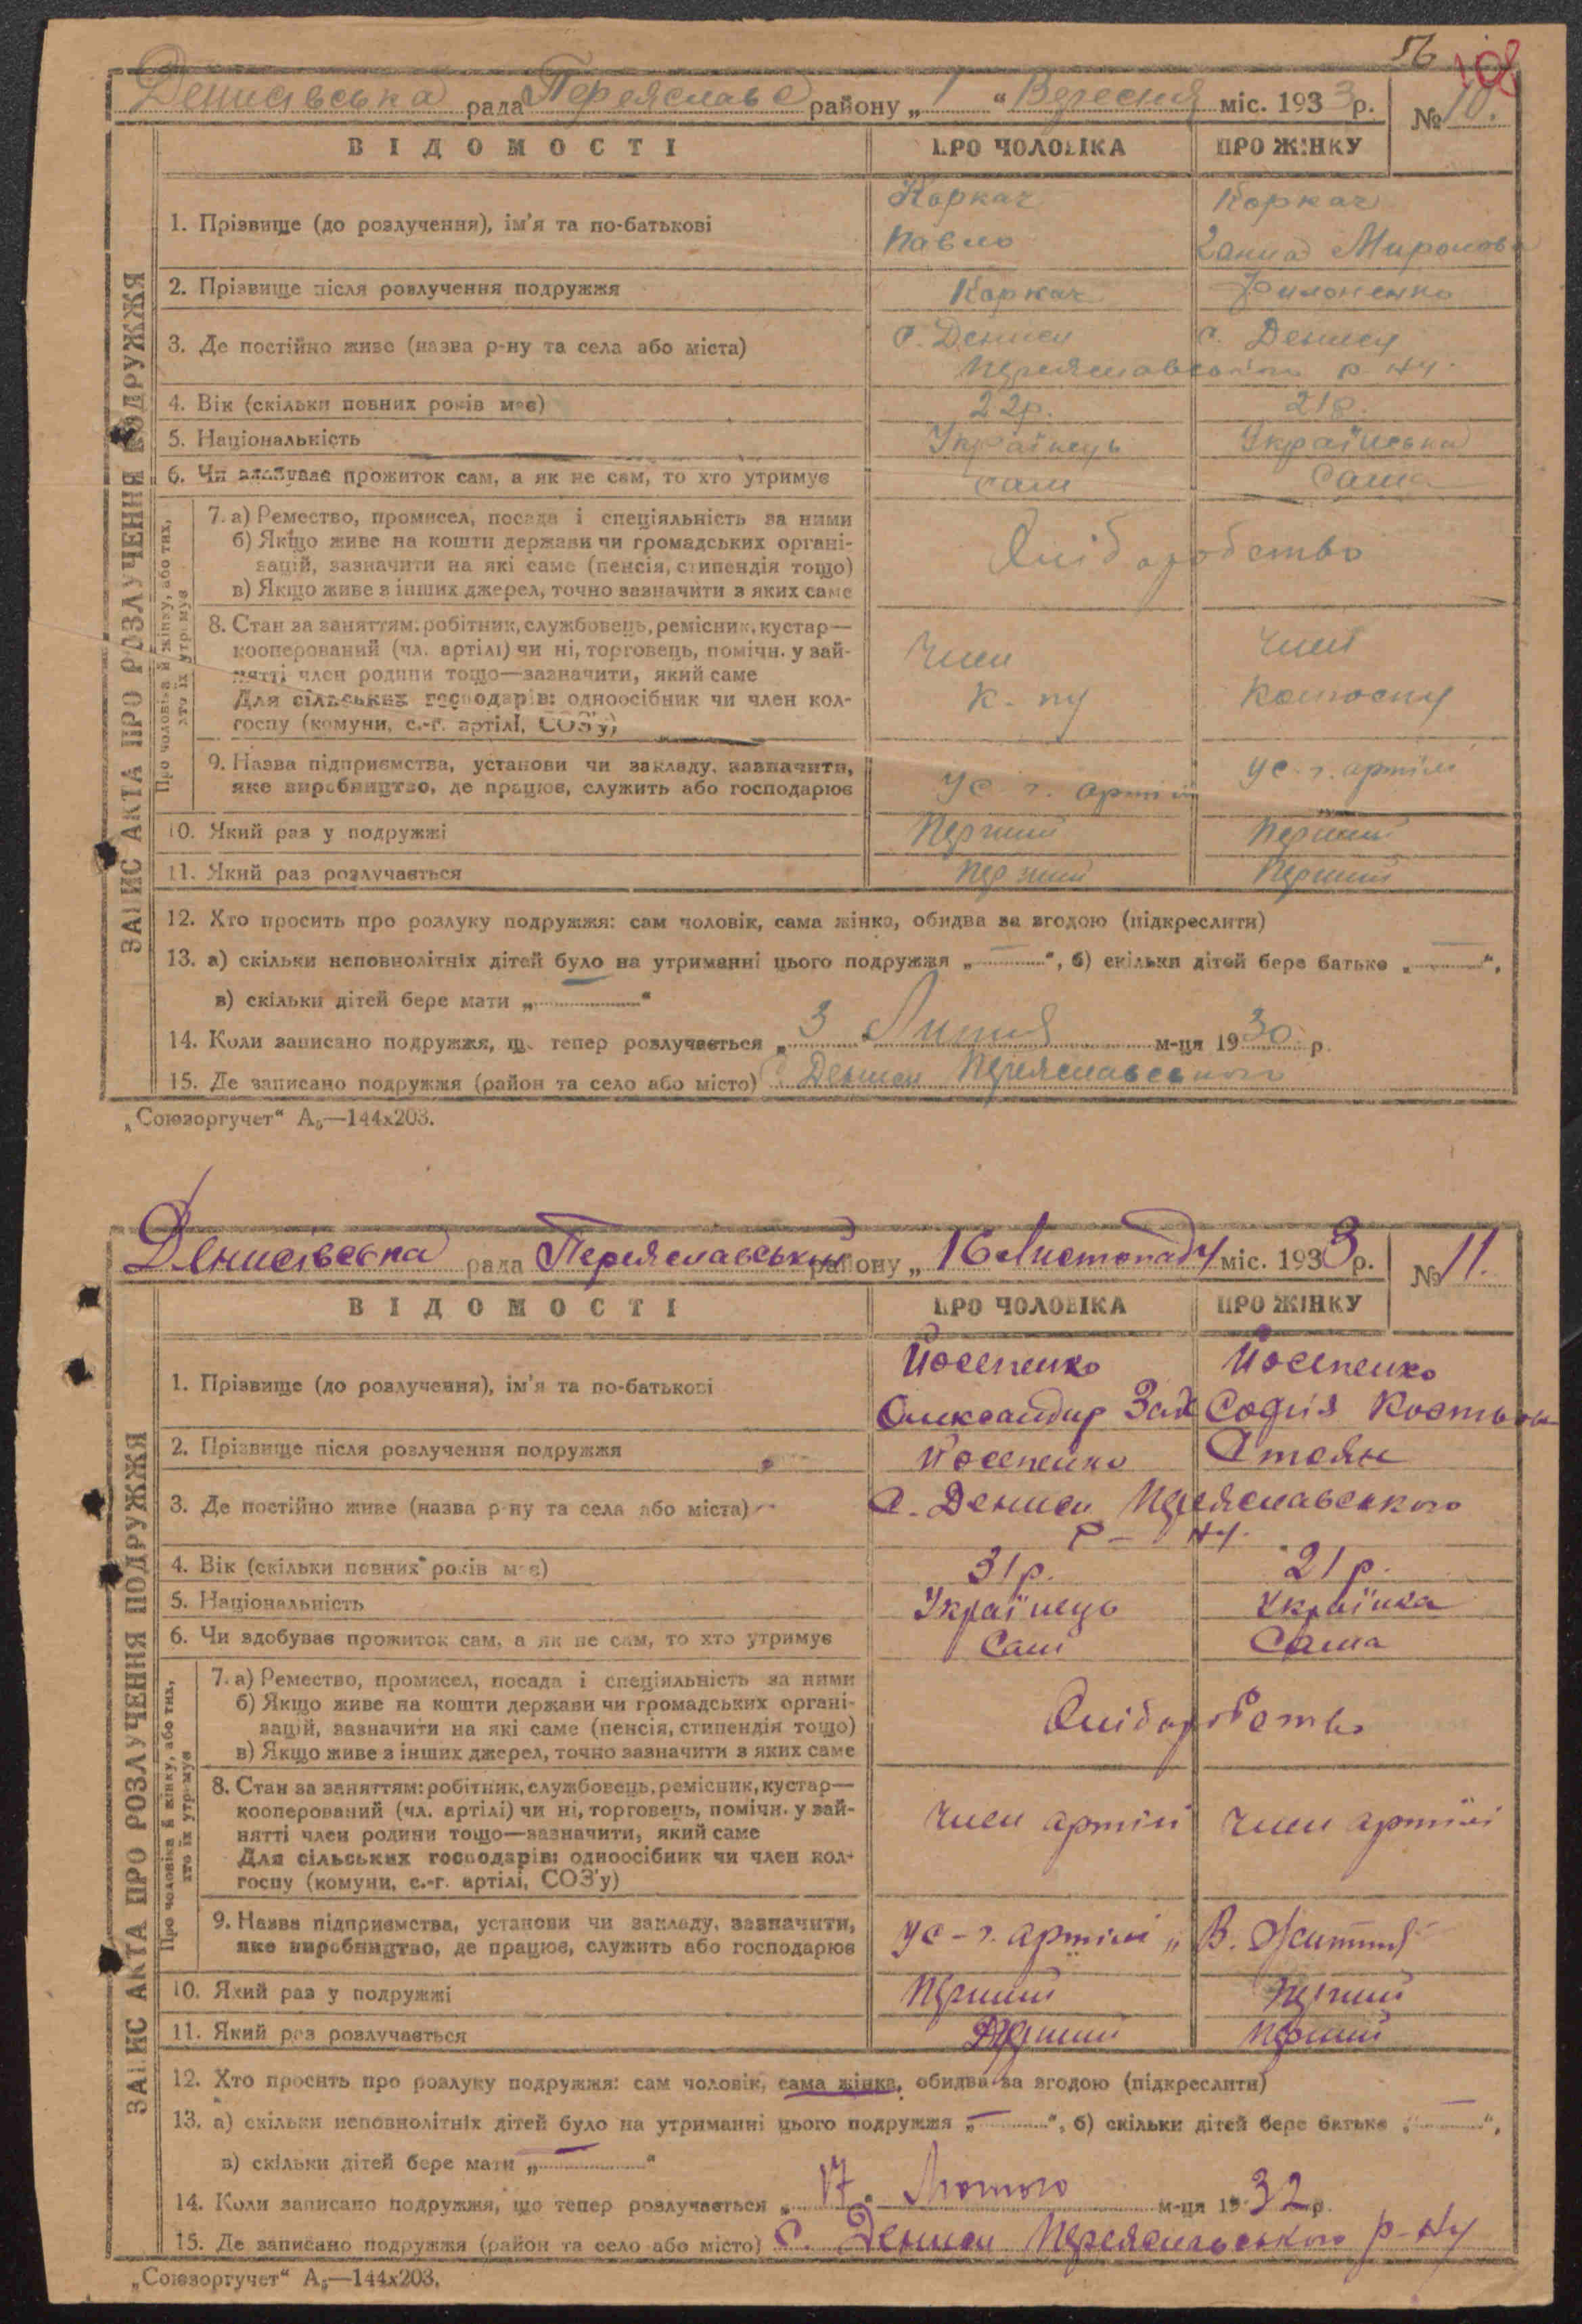 56 108
Денисівська рада Переяславс району „ 1 “ Вересня міс. 1933 р. № 10.
ВІДОМОСТІ ПРО ЧОЛОВІКА ПРО ЖІНКУ
ЗАПИС АКТА ПРО РОЗЛУЧЕННЯ ПОДРУЖЖЯ
Коркач Коркач
1. Прізвище (до розлучення), ім'я та по-батькові
Павло Ганна Миронова
2. Прізвище після розлучення подружжя Коркач Филоненко
3. Де постійно живе (назва р-ну та села або міста) с. Дениси с. Дениси
Переяславського р-ну.
4. Вік (скільки повних років має) 22р. 21р.
5. Національність Українець Українська
6. Чи здобуває прожиток сам, а як не сам, то хто утримує сам Сама
Про чоловіка й жінку, або тих,
хто їх утримує
7. а) Ремество, промисел, посада і спеціяльність за ними
б) Якщо живе на кошти держави чи громадських органі-
зацій, зазначити на які саме (пенсія, стипендія тощо) Хліборобство
в) Якщо живе з інших джерел, точно зазначити з яких саме
8. Стан за заняттям: робітник, службовець, ремісник, кустар—
кооперований (чл. артілі) чи ні, торговець, помічн. у зай- Член член
нятті член родини тощо—зазначити, який саме
Для сільських господарів: одноосібник чи член кол- К-пу Колгоспу
госпу (комуни, с.-г. артілі, СОЗ'у)
9. Назва підприємства, установи чи закладу, зазначити, ус.г. артілі
яке виробництво, де працює, служить або господарює ус г. артілі
10. Який раз у подружжі Перший Перший
11. Який раз розлучається Перший Перший
12. Хто просить про розлуку подружжя: сам чоловік, сама жінка, обидва за згодою (підкреслити)
13. а) скільки неповнолітніх дітей було на утриманні цього подружжя „ — “, б) скільки дітей бере батько „ — “,
в) скільки дітей бере мати „ — “
14. Коли записано подружжя, що тепер розлучається „ 3 Липня м-ця 1930 р.
15. Де записано подружжя (район та село або місто) с. Дениси Переяславського
„Союзоргучет“ А₅—144х203.
Денисівська рада Переяславський району „ 16 Листопаду міс. 1933 р. № 11.
ВІДОМОСТІ ПРО ЧОЛОВІКА ПРО ЖІНКУ
ЗАПИС АКТА ПРО РОЗЛУЧЕННЯ ПОДРУЖЖЯ
Йосепенко Йосепенко
1. Прізвище (до розлучення), ім'я та по-батькові
Олександир Зах Софія Костьов
2. Прізвище після розлучення подружжя Йосепенко Стоян
3. Де постійно живе (назва р-ну та села або міста) с. Дениси Переяславського
р-ну.
4. Вік (скільки повних років має) 31р. 21р.
5. Національність Українець Українка
6. Чи здобуває прожиток сам, а як не сам, то хто утримує Сам Сама
Про чоловіка й жінку, або тих,
хто їх утримує
7. а) Ремество, промисел, посада і спеціяльність за ними
б) Якщо живе на кошти держави чи громадських органі-
зацій, зазначити на які саме (пенсія, стипендія тощо) Хліборобство
в) Якщо живе з інших джерел, точно зазначити з яких саме
8. Стан за заняттям: робітник, службовець, ремісник, кустар—
кооперований (чл. артілі) чи ні, торговець, помічн. у зай- член артілі член артілі
нятті член родини тощо—зазначити, який саме
Для сільських господарів: одноосібник чи член кол-
госпу (комуни, с.-г. артілі, СОЗ'у)
9. Назва підприємства, установи чи закладу, зазначити,
яке виробництво, де працює, служить або господарює ус-г. артілі „В. Життя“
10. Який раз у подружжі Перший Перший
11. Який раз розлучається Перший Перший
12. Хто просить про розлуку подружжя: сам чоловік, сама жінка, обидва за згодою (підкреслити)
13. а) скільки неповнолітніх дітей було на утриманні цього подружжя „ — “, б) скільки дітей бере батько „ — “,
в) скільки дітей бере мати „ — “
14. Коли записано подружжя, що тепер розлучається „ 17 “ Лютого м-ця 1932 р.
15. Де записано подружжя (район та село або місто) С. Дениси Переяславського р-ну
„Союзоргучет“ А₅—144х203.